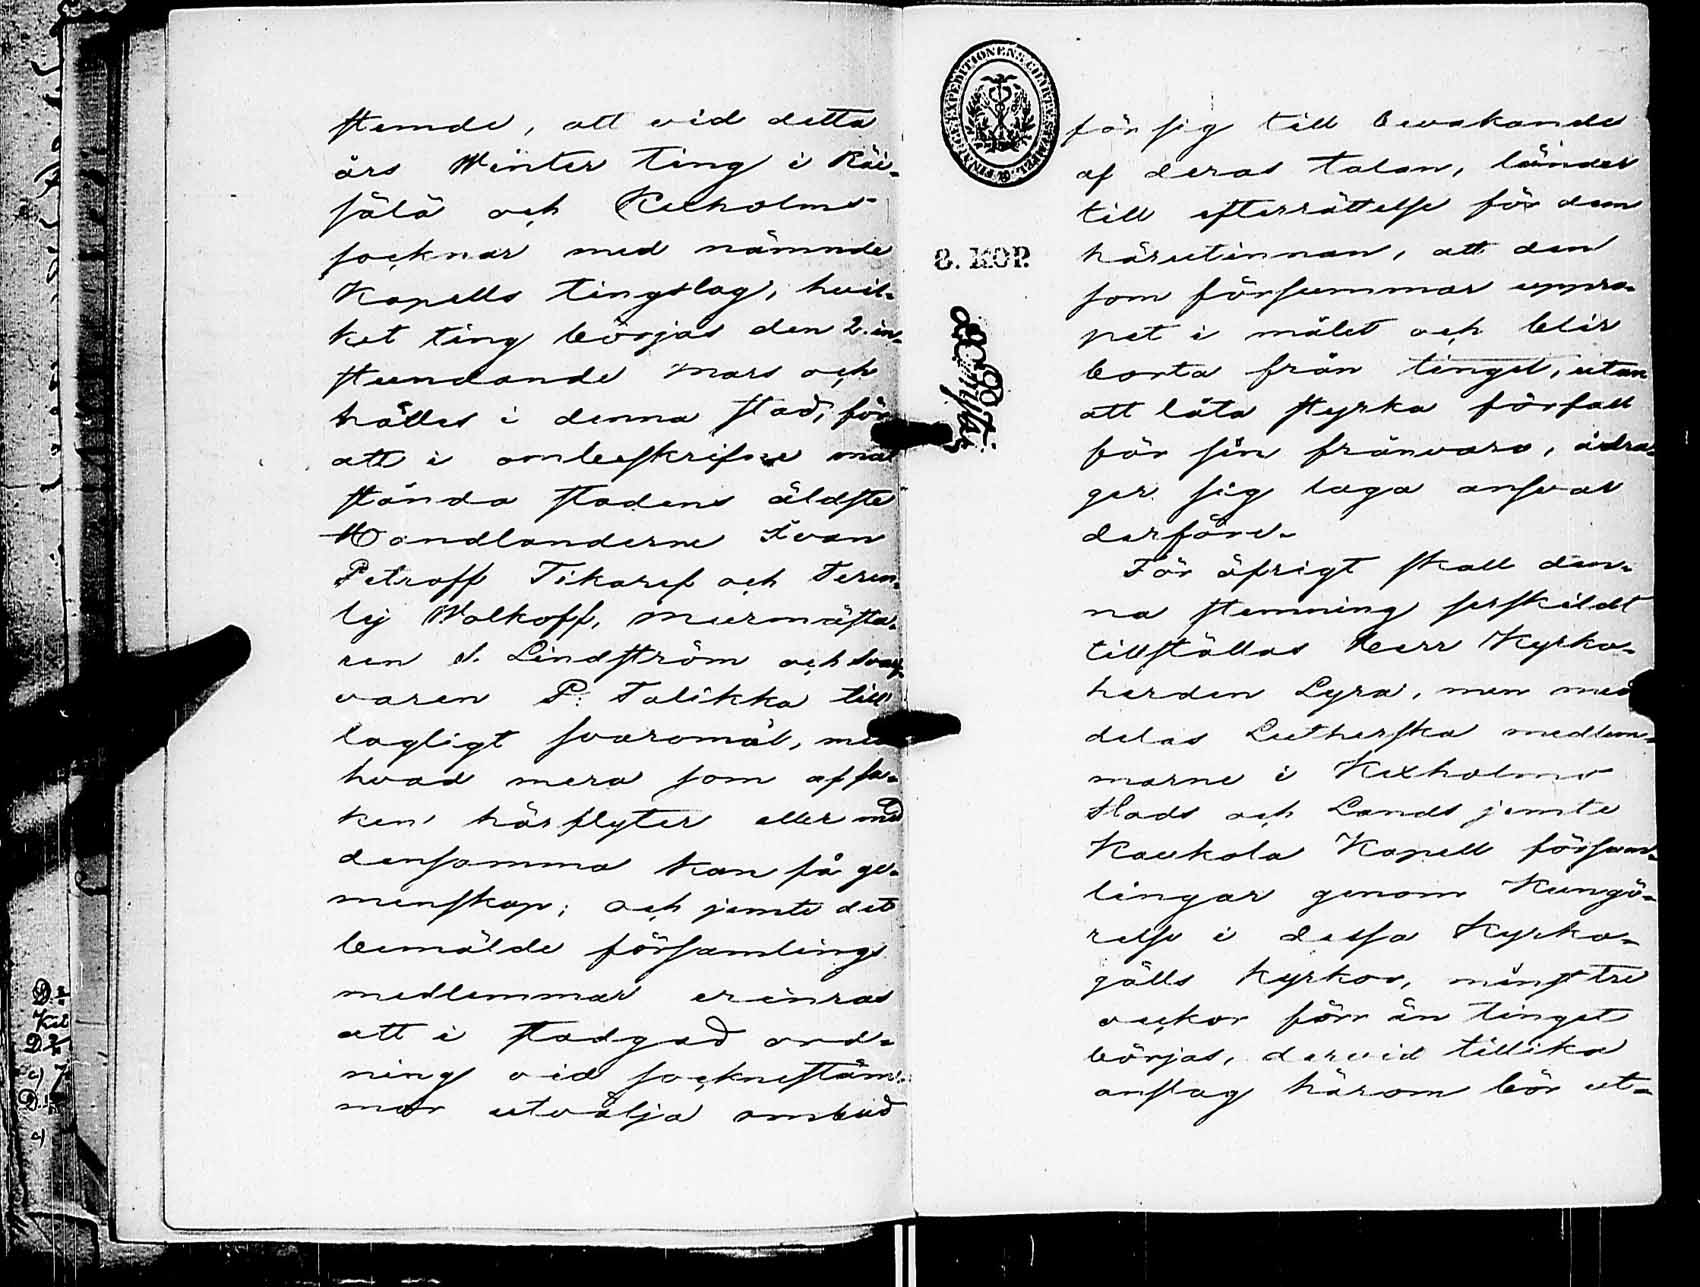 stemde, att vid detta
års Winter Ting i Räi-
sälä och Kexholms
socknar med nämnde
Kapells tingslag, hvil-
ket ting börjas den 2. in-
stundande Mars och
hålles i denna stad, för
att i ombeskrifne mål
stånda stadens äldste
Handlanderne Ivan
Petroff Tikaref och Teren-
tij Wolkoff, Murmästa-
ren J. Lindström och svar-
varen P. Talikka till
lagligt svaromål, med
hvad mera som af sa-
ken härflyter eller med
densamma kan få ge-
menskap; och jemte det
bemälde församlings
medlemmar erinras
att i stadgad ord-
ning vid sockneställ-
mor utvälja ombud
FINANCE EXPEDITIONENS CHARTÆ STÄMPEL
8. KOP.
för sig till bevakande
af deras talan, länder
till efterrättelse för dem
härutinnan, att den
som försummar uppro-
pet i målet och blir
borta från tinget, utan
att låta styrka förfall
för sin frånvaro, ådra-
ger sig laga ansvar
derföre.
För öfrigt skall den-
na stemning serskildt
tillställas Herr Kyrko-
herden Lyra, men med
delas Lutherska medlem-
marne i Kexholms
Stads och Lands jemte
Kaukola Kapell försam-
lingar genom Kungö-
relse i dessa Kyrko-
gälls kyrkor, minst tre
veckor förr än tinget
börjas, dervid tillika
anslag härom bör ut-